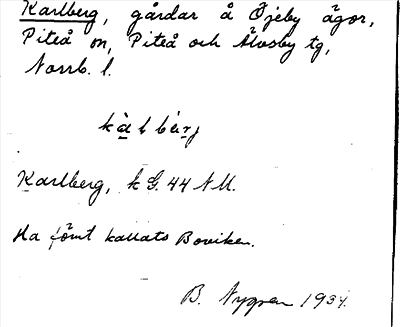 Karlberg, gårdar å Öjeby ägor,
Piteå sn, Piteå och Älvsby tg,
Norrb. l.
Karlberg, k G. 44 NU.
Ha förut kallats Boviken.
B. Nygren 1934.